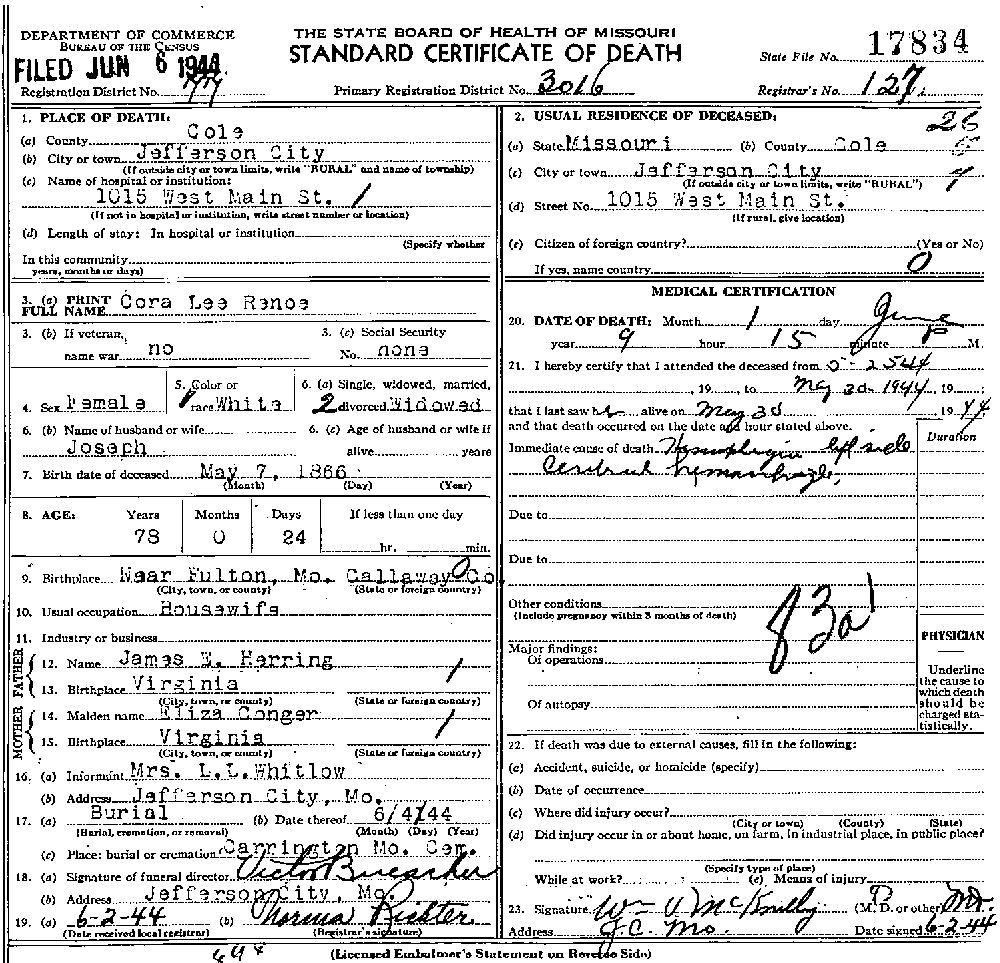 DEPARTMENT OF COMMERCE
BUREAU OF THE CENSUS
FILED JUN 6 1944
Registration District No. 77
THE STATE BOARD OF HEALTH OF MISSOURI
STANDARD CERTIFICATE OF DEATH
Primary Registration District No. 3016
State File No. 17834
Registrar's No. 127
1. PLACE OF DEATH:
(a) County Cole
(b) City or town Jefferson City
(If outside city or town limits, write "RURAL" and name of township)
(c) Name of hospital or institution:
1015 West Main St. /
(If not in hospital or institution, write street number or location)
(d) Length of stay: In hospital or institution
(Specify whether
In this community
years, months or days)
3. (a) PRINT FULL NAME Cora Lee Renoe
3. (b) If veteran, name war no
3. (c) Social Security No. none
4. Sex Female
5. Color or race White
6. (a) Single, widowed, married, divorced Widowed
2
6. (b) Name of husband or wife Joseph
6. (c) Age of husband or wife if alive years
7. Birth date of deceased May 7, 1866
(Month) (Day) (Year)
8. AGE: Years Months Days If less than one day
78 0 24 hr. min.
9. Birthplace Near Fulton, Mo. Callaway Co
0
(City, town, or county) (State or foreign country)
10. Usual occupation Housewife
11. Industry or business
FATHER
12. Name James E. Herring
13. Birthplace Virginia
(City, town, or county) (State or foreign country)
MOTHER
14. Maiden name Eliza Conger
15. Birthplace Virginia
(City, town, or county) (State or foreign country)
16. (a) Informant Mrs. L.L. Whitlow
(b) Address Jefferson City, Mo.
17. (a) Burial (b) Date thereof 6/4/44
(Burial, cremation, or removal) (Month) (Day) (Year)
(c) Place: burial or cremation Carrington Mo. Cem.
18. (a) Signature of funeral director Victor Buescher
(b) Address Jefferson City, Mo
19. (a) 6-2-44 (b) Norma Richter
(Date received local registrar) (Registrar's signature)
2. USUAL RESIDENCE OF DECEASED:
26
(a) State Missouri (b) County Cole
(c) City or town Jefferson City
(If outside city or town limits, write "RURAL")
(d) Street No. 1015 West Main St.
(If rural, give location)
(e) Citizen of foreign country? (Yes or No)
0
If yes, name country
MEDICAL CERTIFICATION
20. DATE OF DEATH: Month 1 day June
year 9 hour 15 minute P M.
21. I hereby certify that I attended the deceased from 5-2544
, 19 , to May 30-1944, 19 ;
that I last saw h alive on May 30 1944
and that death occurred on the date and hour stated above.
Duration
Immediate cause of death Hemiplegia left side
Cerebral hemorrhage
Due to
Due to
Other conditions
(Include pregnancy within 3 months of death)
83a1
Major findings:
Of operations
Of autopsy
PHYSICIAN
Underline the cause to which death should be charged statistically.
22. If death was due to external causes, fill in the following:
(a) Accident, suicide, or homicide (specify)
(b) Date of occurrence
(c) Where did injury occur?
(City or town) (County) (State)
(d) Did injury occur in or about home, on farm, in industrial place, in public place?
(Specify type of place)
While at work? (e) Means of injury
23. Signature (M. D. or other) MD.
Address J.C. Mo. Date signed 6-2-44
(Licensed Embalmer's Statement on Reverse Side)